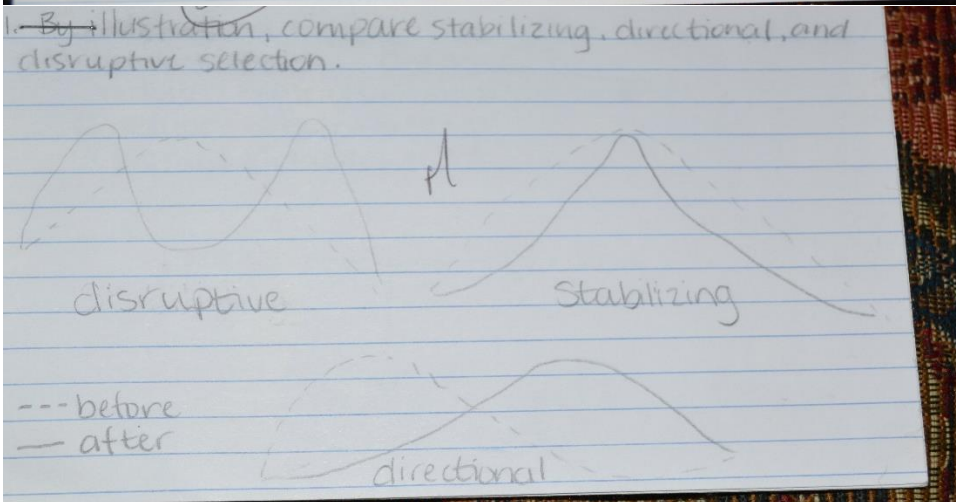 1. By illustration, compare stabilizing, directional, and
disruptive selection.
disruptive
Stablizing
--- before
— after
directional